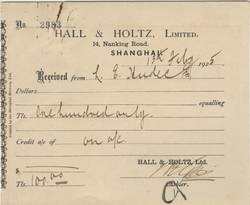 No. 2983
HALL & HOLTZ, LIMITED.
14, Nanking Road.
SHANGHAI, Feby 1925
Received from L. E. Hudec
Dollars equalling
Tls. One hundred only.
Credit a/c of on a/c
HALL & HOLTZ, Ltd.
Tls. 100.00
Cashier.